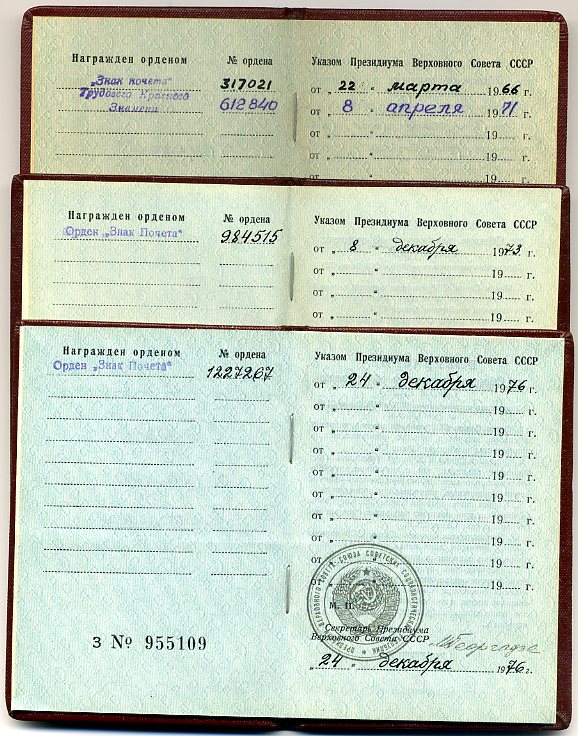 Награжден орденом № ордена Указом Президиума Верховного Совета СССР
„Знак почета“ 317021 от „ 22 “ марта 1966 г.
Трудового Красного 612840 от „ 8 “ апреля 1971 г.
Знамени от „ “ 19 г.
от „ “ 19 г.
от „ “ 19 г.
Награжден орденом № ордена Указом Президиума Верховного Совета СССР
Орден „Знак Почета“ 984515 от „ 8 “ декабря 1973 г.
от „ “ 19 г.
от „ “ 19 г.
от „ “ 19 г.
Награжден орденом № ордена Указом Президиума Верховного Совета СССР
Орден „Знак Почета“ 1227267 от „ 24 “ декабря 1976 г.
от „ “ 19 г.
от „ “ 19 г.
от „ “ 19 г.
от „ “ 19 г.
от „ “ 19 г.
от „ “ 19 г.
от „ “ 19 г.
от „ “ 19 г.
от „ “ 19 г.
М. П.
Секретарь Президиума
Верховного Совета СССР
З № 955109
„ 24 “ декабря 1976 г.